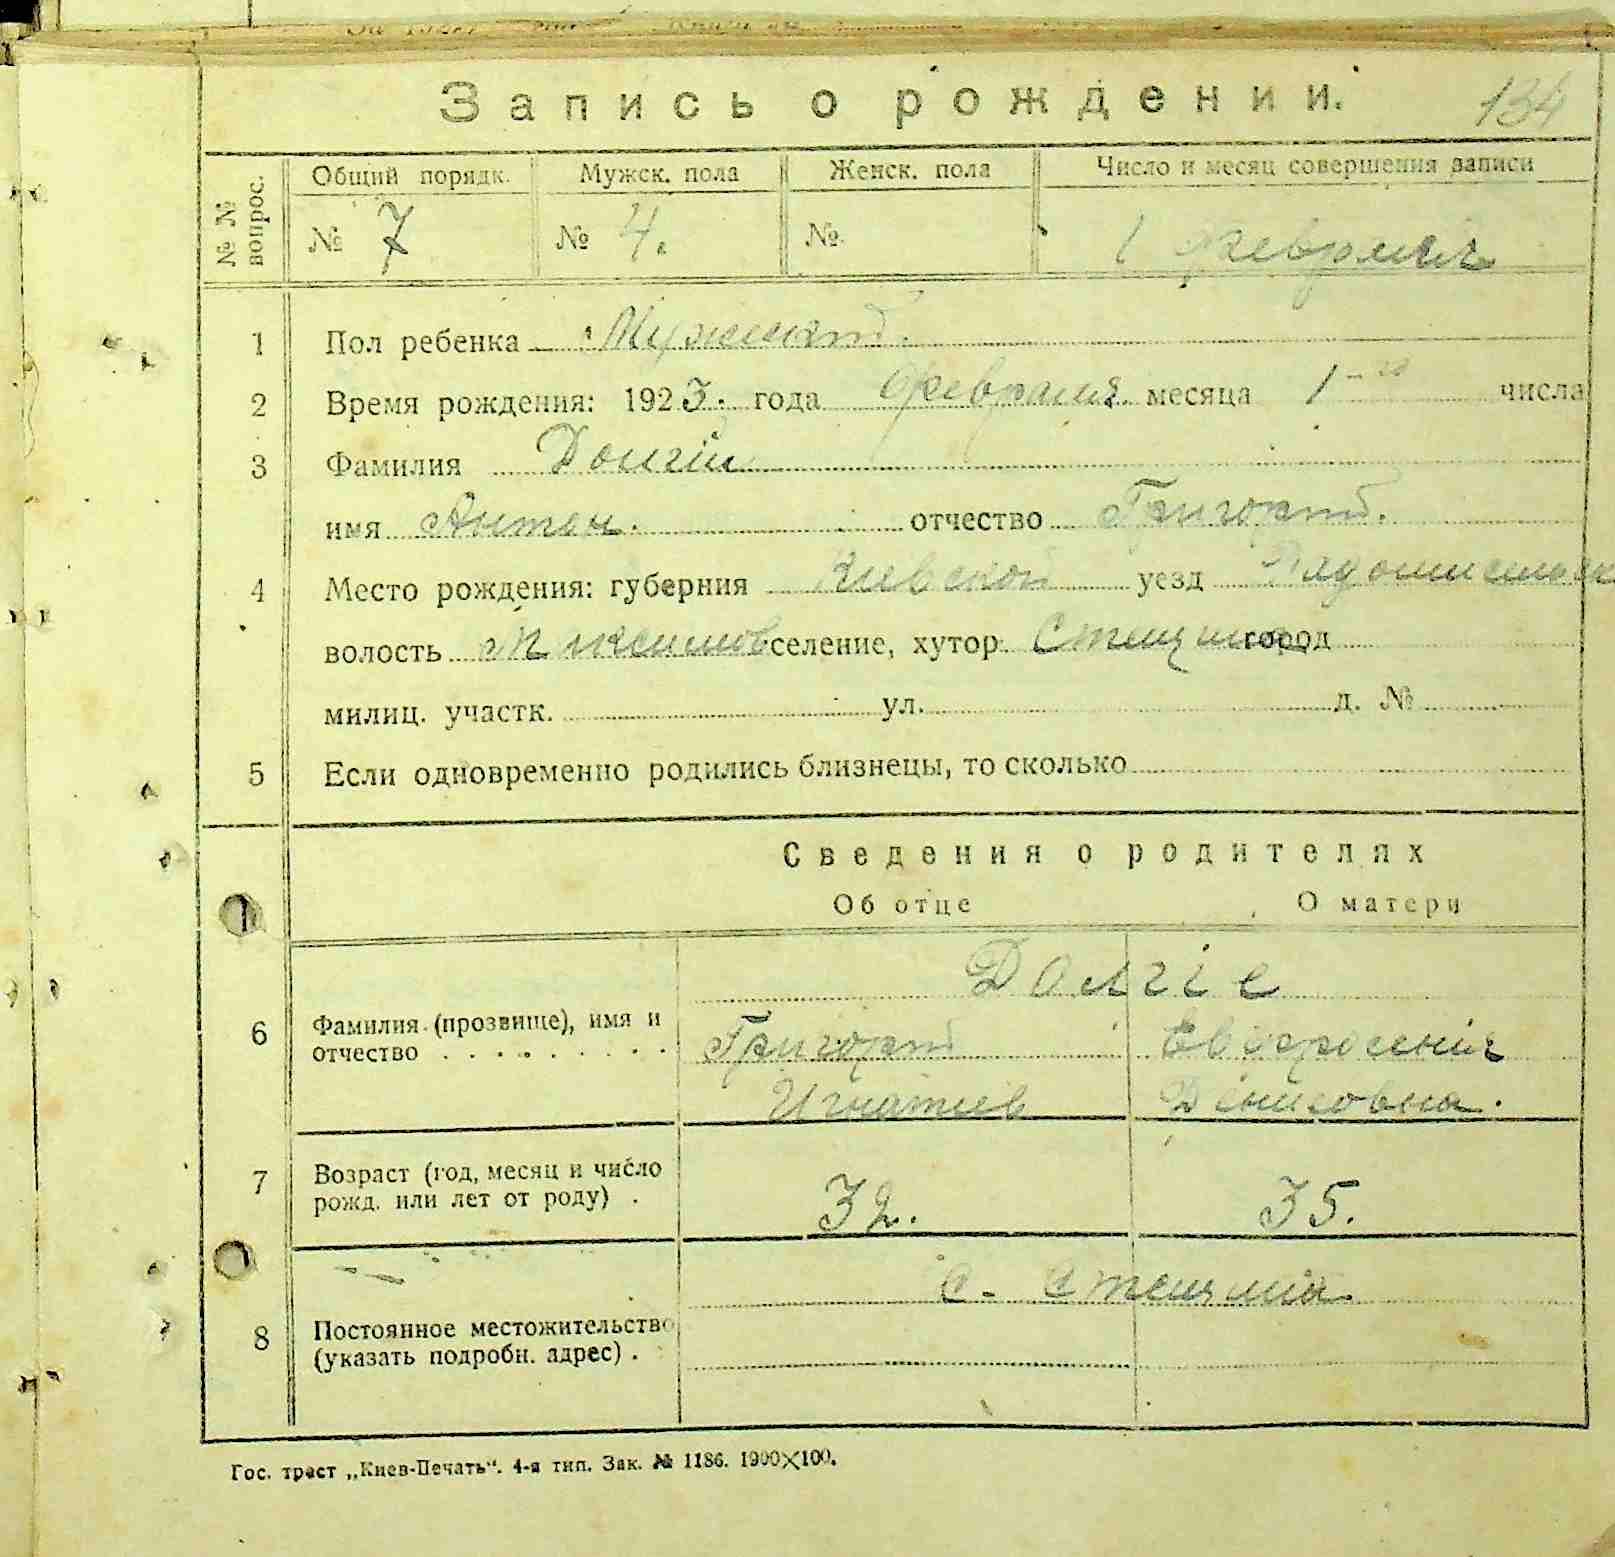 Запись о рождении.
134
№№ вопрос.
Общий порядк.
Мужск. пола
Женск. пола
Число и месяц совершения записи
№ 7
№ 4.
№
1 февраля
1 Пол ребенка Мужской.
2 Время рождения: 1923. года февраля месяца 1-го числа
3 Фамилия Долгій
имя Антон. отчество Григорій.
4 Место рождения: губерния Киевской уезд
волость селение, хутор город
милиц. участк. ул. д. №
5 Если одновременно родились близнецы, то сколько
Сведения о родителях
Об отце О матери
Долгіе
6 Фамилия (прозвище), имя и
отчество . . . . . . . . .
Григорій Евфросинія
Игнатиев Денисовна.
7 Возраст (год, месяц и число
рожд. или лет от роду) .
32. 35.
с.
8 Постоянное местожительство
(указать подробн. адрес) .
Гос. трест „Киев-Печать“. 4-я тип. Зак. № 1186. 1900×100.